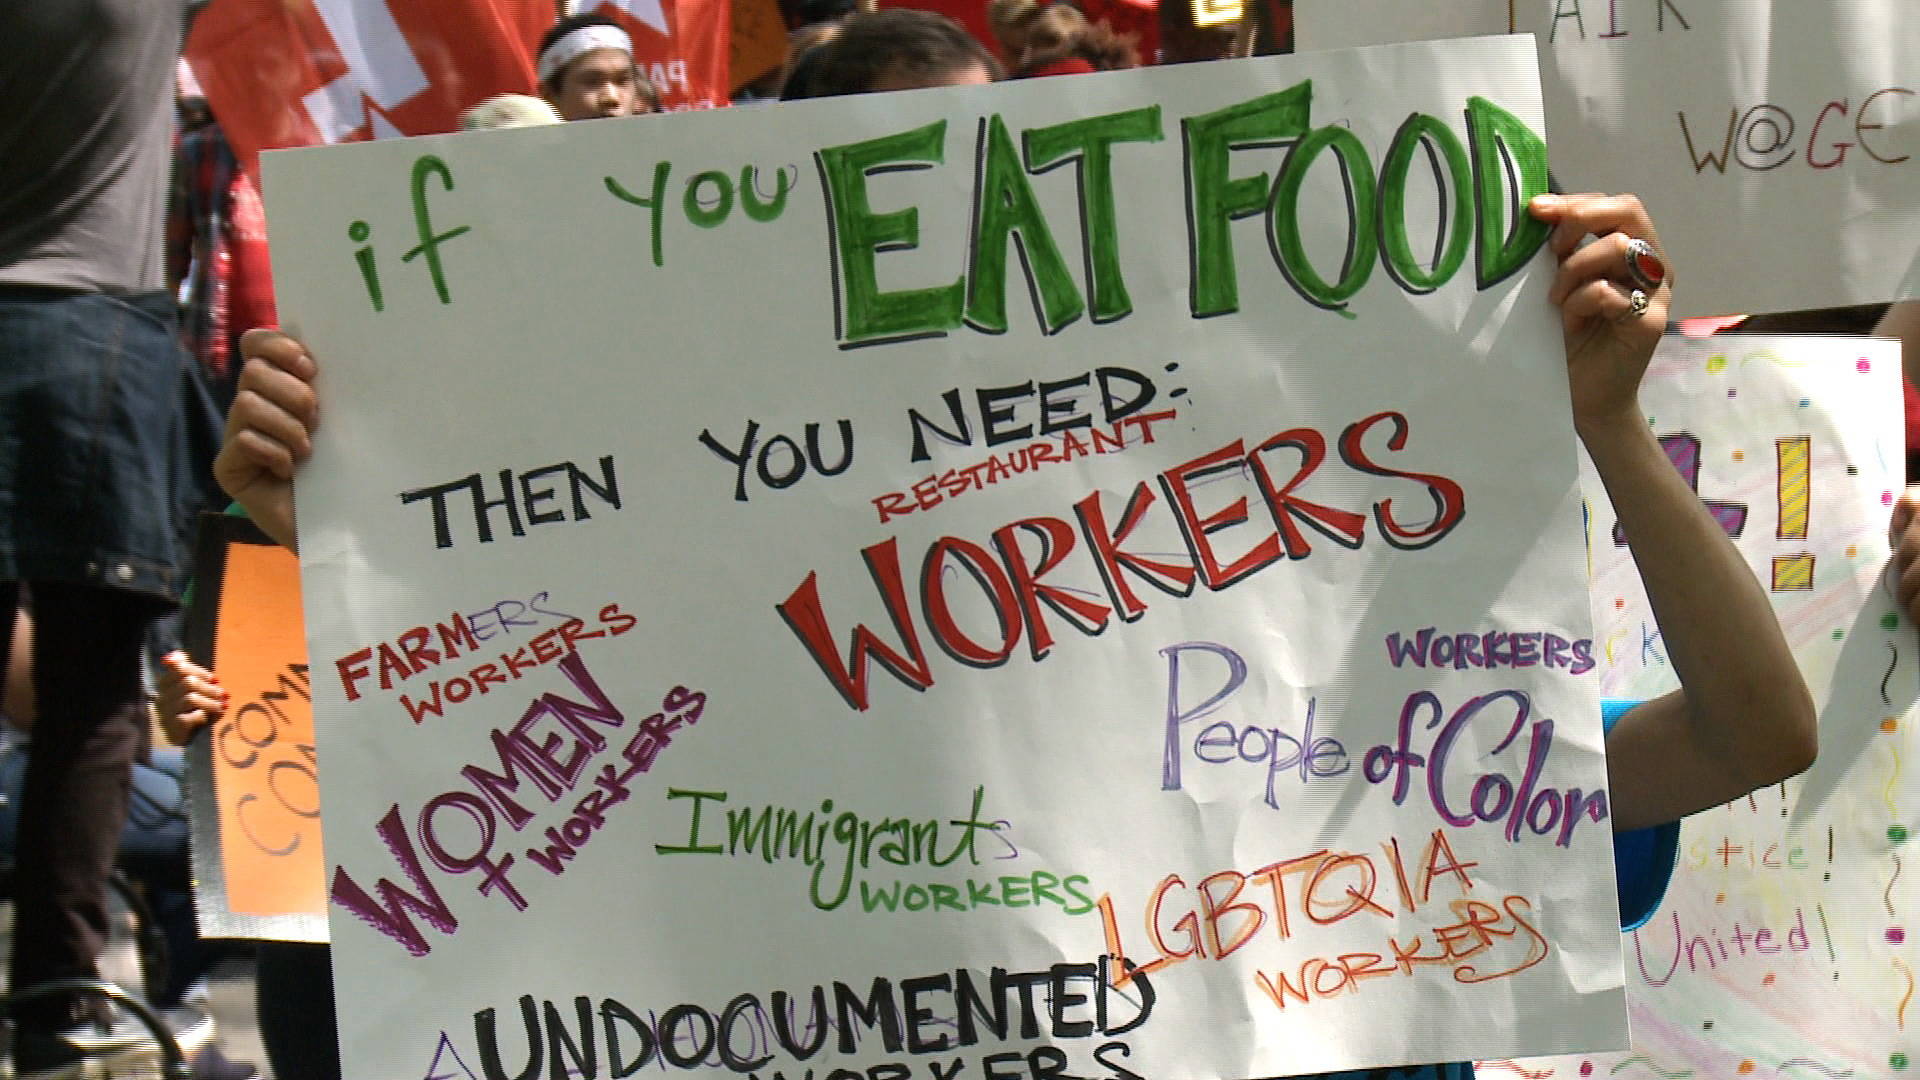 if you EAT FOOD
THEN YOU NEED:
RESTAURANT
WORKERS
FARMERS
WORKERS
WOMEN
+ WORKERS
Immigrants
WORKERS
WORKERS
People of Color
LGBTQIA
WORKERS
UNDOCUMENTED
WORKERS
W@GE
United!